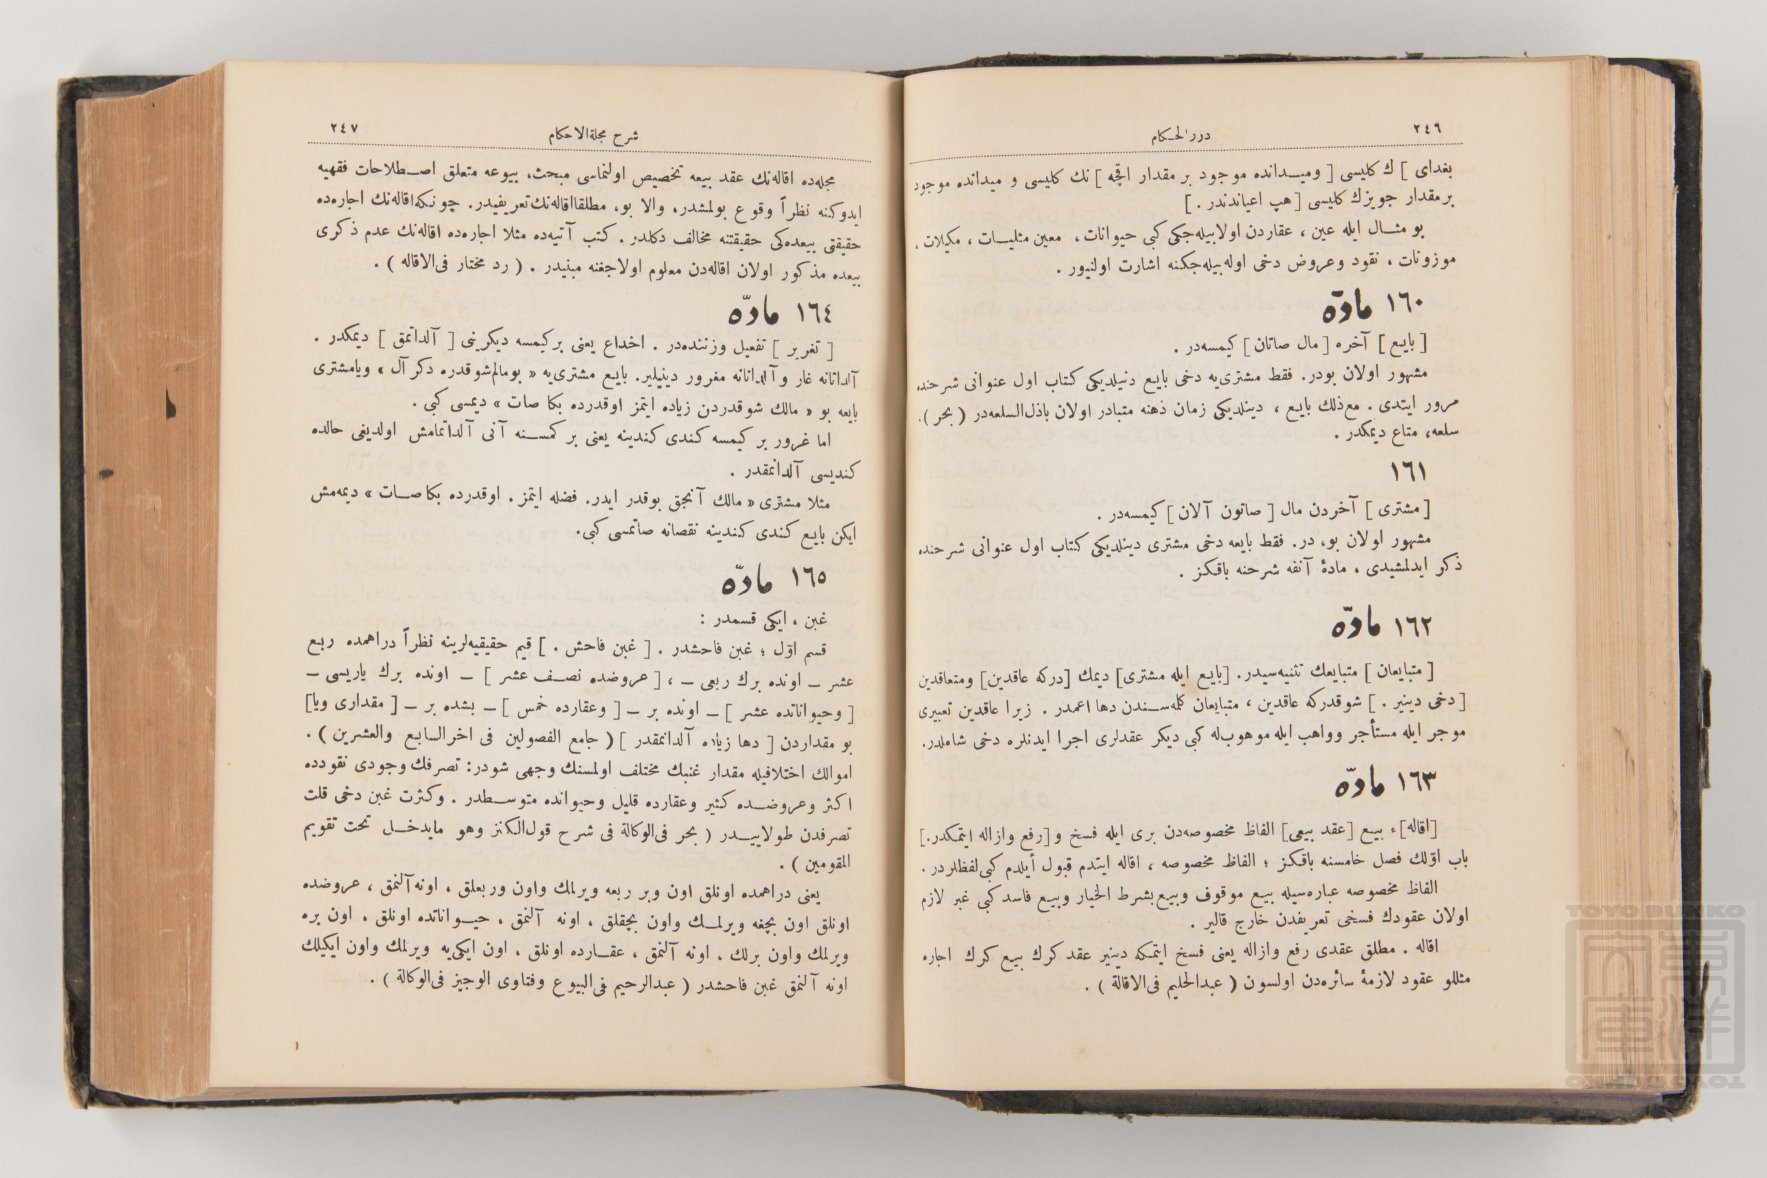 ٢٤٦
دررالحكام
بغدای ] ك كليسی [ وميدانده موجود بر مقدار اقچه ] نك كليسی و ميدانده موجود
برمقدار جويزك كليسی [ هپ اعياندندر . ]
بو مثال ايله عين ، عقاردن اولابيله‌جكی كبی حيوانات ، معين مثليات ، مكيلات ،
موزونات ، نقود وعروض دخی اوله‌بيله‌جكنه اشارت اولنيور .
١٦٠ مادّه
[ بايع ] آخره [ مال صاتان ] كيمسه‌در .
مشهور اولان بودر. فقط مشتری‌يه دخی بايع دنيلديكی كتاب اول عنوانی شرحنده
مرور ايتدی . مع‌ذلك بايع ، دينلديكی زمان ذهنه متبادر اولان باذل‌السلعه‌در ( بحر ).
سلعه، متاع ديمكدر .
١٦١
[ مشتری ] آخردن مال [ صاتون آلان ] كيمسه‌در .
مشهور اولان بو، در. فقط بايعه دخی مشتری دينلديكی كتاب اول عنوانی شرحنده
ذكر ايدلمشيدی ، مادۀ آنفه شرحنه باقكز .
١٦٢ مادّه
[ متبايعان ] متبايعك تثنيه‌سيدر. [بايع ايله مشتری] ديمك [دركه عاقدين] ومتعاقدين
[ دخی دينير . ] شوقدركه عاقدين ، متبايعان كلمه‌سندن دها اعمدر . زيرا عاقدين تعبيری
موجر ايله مستأجر وواهب ايله موهوب‌له كبی ديكر عقدلری اجرا ايدنلره دخی شاملدر.
١٦٣ مادّه
[اقاله]، بيع [عقد بيعی] الفاظ مخصوصه‌دن بری ايله فسخ و[رفع وازاله ايتمكدر.]
باب اوّلك فصل خامسنه باقكز ؛ الفاظ مخصوصه ، اقاله ايتدم قبول أيلدم كبی لفظلردر .
الفاظ مخصوصه عباره‌سيله بيع موقوف وبيع بشرط الخيار وبيع فاسد كبی غير لازم
اولان عقودك فسخی تعريفدن خارج قالير .
اقاله . مطلق عقدی رفع وازاله يعنی فسخ ايتمكه دينير عقد كرك بيع كرك اجاره
مثللو عقود لازمۀ سائره‌دن اولسون ( عبدالحليم فی‌الاقالة ) .
شرح مجلةالاحكام
٢٤٧
مجله‌ده اقاله‌نك عقد بيعه تخصيص اولنماسی مبحث، بيوعه متعلق اصطلاحات فقهيه
ايدوكنه نظراً وقوع بولمشدر، والا بو، مطلقااقاله‌نك‌تعريفيدر. چونكه‌اقاله‌نك اجاره‌ده
حقيقتی بيعده‌كی حقيقتنه مخالف دكلدر . كتب آتيه‌ده مثلا اجاره‌ده اقاله‌نك عدم ذكری
بيعده مذكور اولان اقاله‌دن معلوم اولاجغنه مبنيدر . ( رد مختار فی‌الاقاله ) .
١٦٤ مادّه
[ تغرير ] تفعيل وزننده‌در . اخداع يعنی بركيمسه ديكرينی [ آلداتمق ] ديمكدر .
آلداتانه غار وآلدانانه مغرور دينيلير. بايع مشتری‌يه « بومالم‌شوقدره دكر آل » ويامشتری
بايعه بو « مالك شوقدردن زياده ايتمز اوقدرده بكا صات » ديمسی كبی .
اما غرور بر كيمسه كندی كندينه يعنی بر كمسنه آنی آلداتمامش اولديغی حالده
كنديسی آلدانمقدر .
مثلا مشتری « مالك آنجق بوقدر ايدر. فضله ايتمز . اوقدرده بكا صات » ديمه‌مش
ايكن بايع كندی كندينه نقصانه صاتمسی كبی.
١٦٥ مادّه
غبن ، ايكی قسمدر :
قسم اوّل ؛ غبن فاحشدر . [ غبن فاحش . ] قيم حقيقيه‌لرينه نظراً دراهمده ربع
عشر ـ اونده برك ربعی ـ ، [ عروضده نصف عشر ] ـ اونده برك ياريسی ـ
[ وحيواناتده عشر ] ـ اونده بر ـ [ وعقارده خمس ] ـ بشده بر ـ [ مقداری ويا]
بو مقداردن [ دها زياده آلدانمقدر ] ( جامع الفصولين فی اخرالسابع والعشرين ) .
اموالك اختلافيله مقدار غبنك مختلف اولمسنك وجهی شودر: تصرفك وجودی نقودده
اكثر وعروضده كثير وعقارده قليل وحيوانده متوسطدر . وكثرت غبن دخی قلت
تصرفدن طولاييدر ( بحر فی‌الوكالة فی شرح قول‌الكنز وهو مايدخل تحت تقويم
المقومين ) .
يعنی دراهمده اونلق اون وبر ربعه ويرلمك واون وربعلق ، اونه آلنمق ، عروضده
اونلق اون بچغه ويرلمك واون بچقلق ، اونه آلنمق ، حيواناتده اونلق ، اون بره
ويرلمك واون برلك ، اونه آلنمق ، عقارده اونلق ، اون ايكی‌يه ويرلمك واون ايكيلك
اونه آلنمق غبن فاحشدر ( عبدالرحيم فی‌البيوع وفتاوی الوجيز فی‌الوكالة ) .
TOYO BUNKO